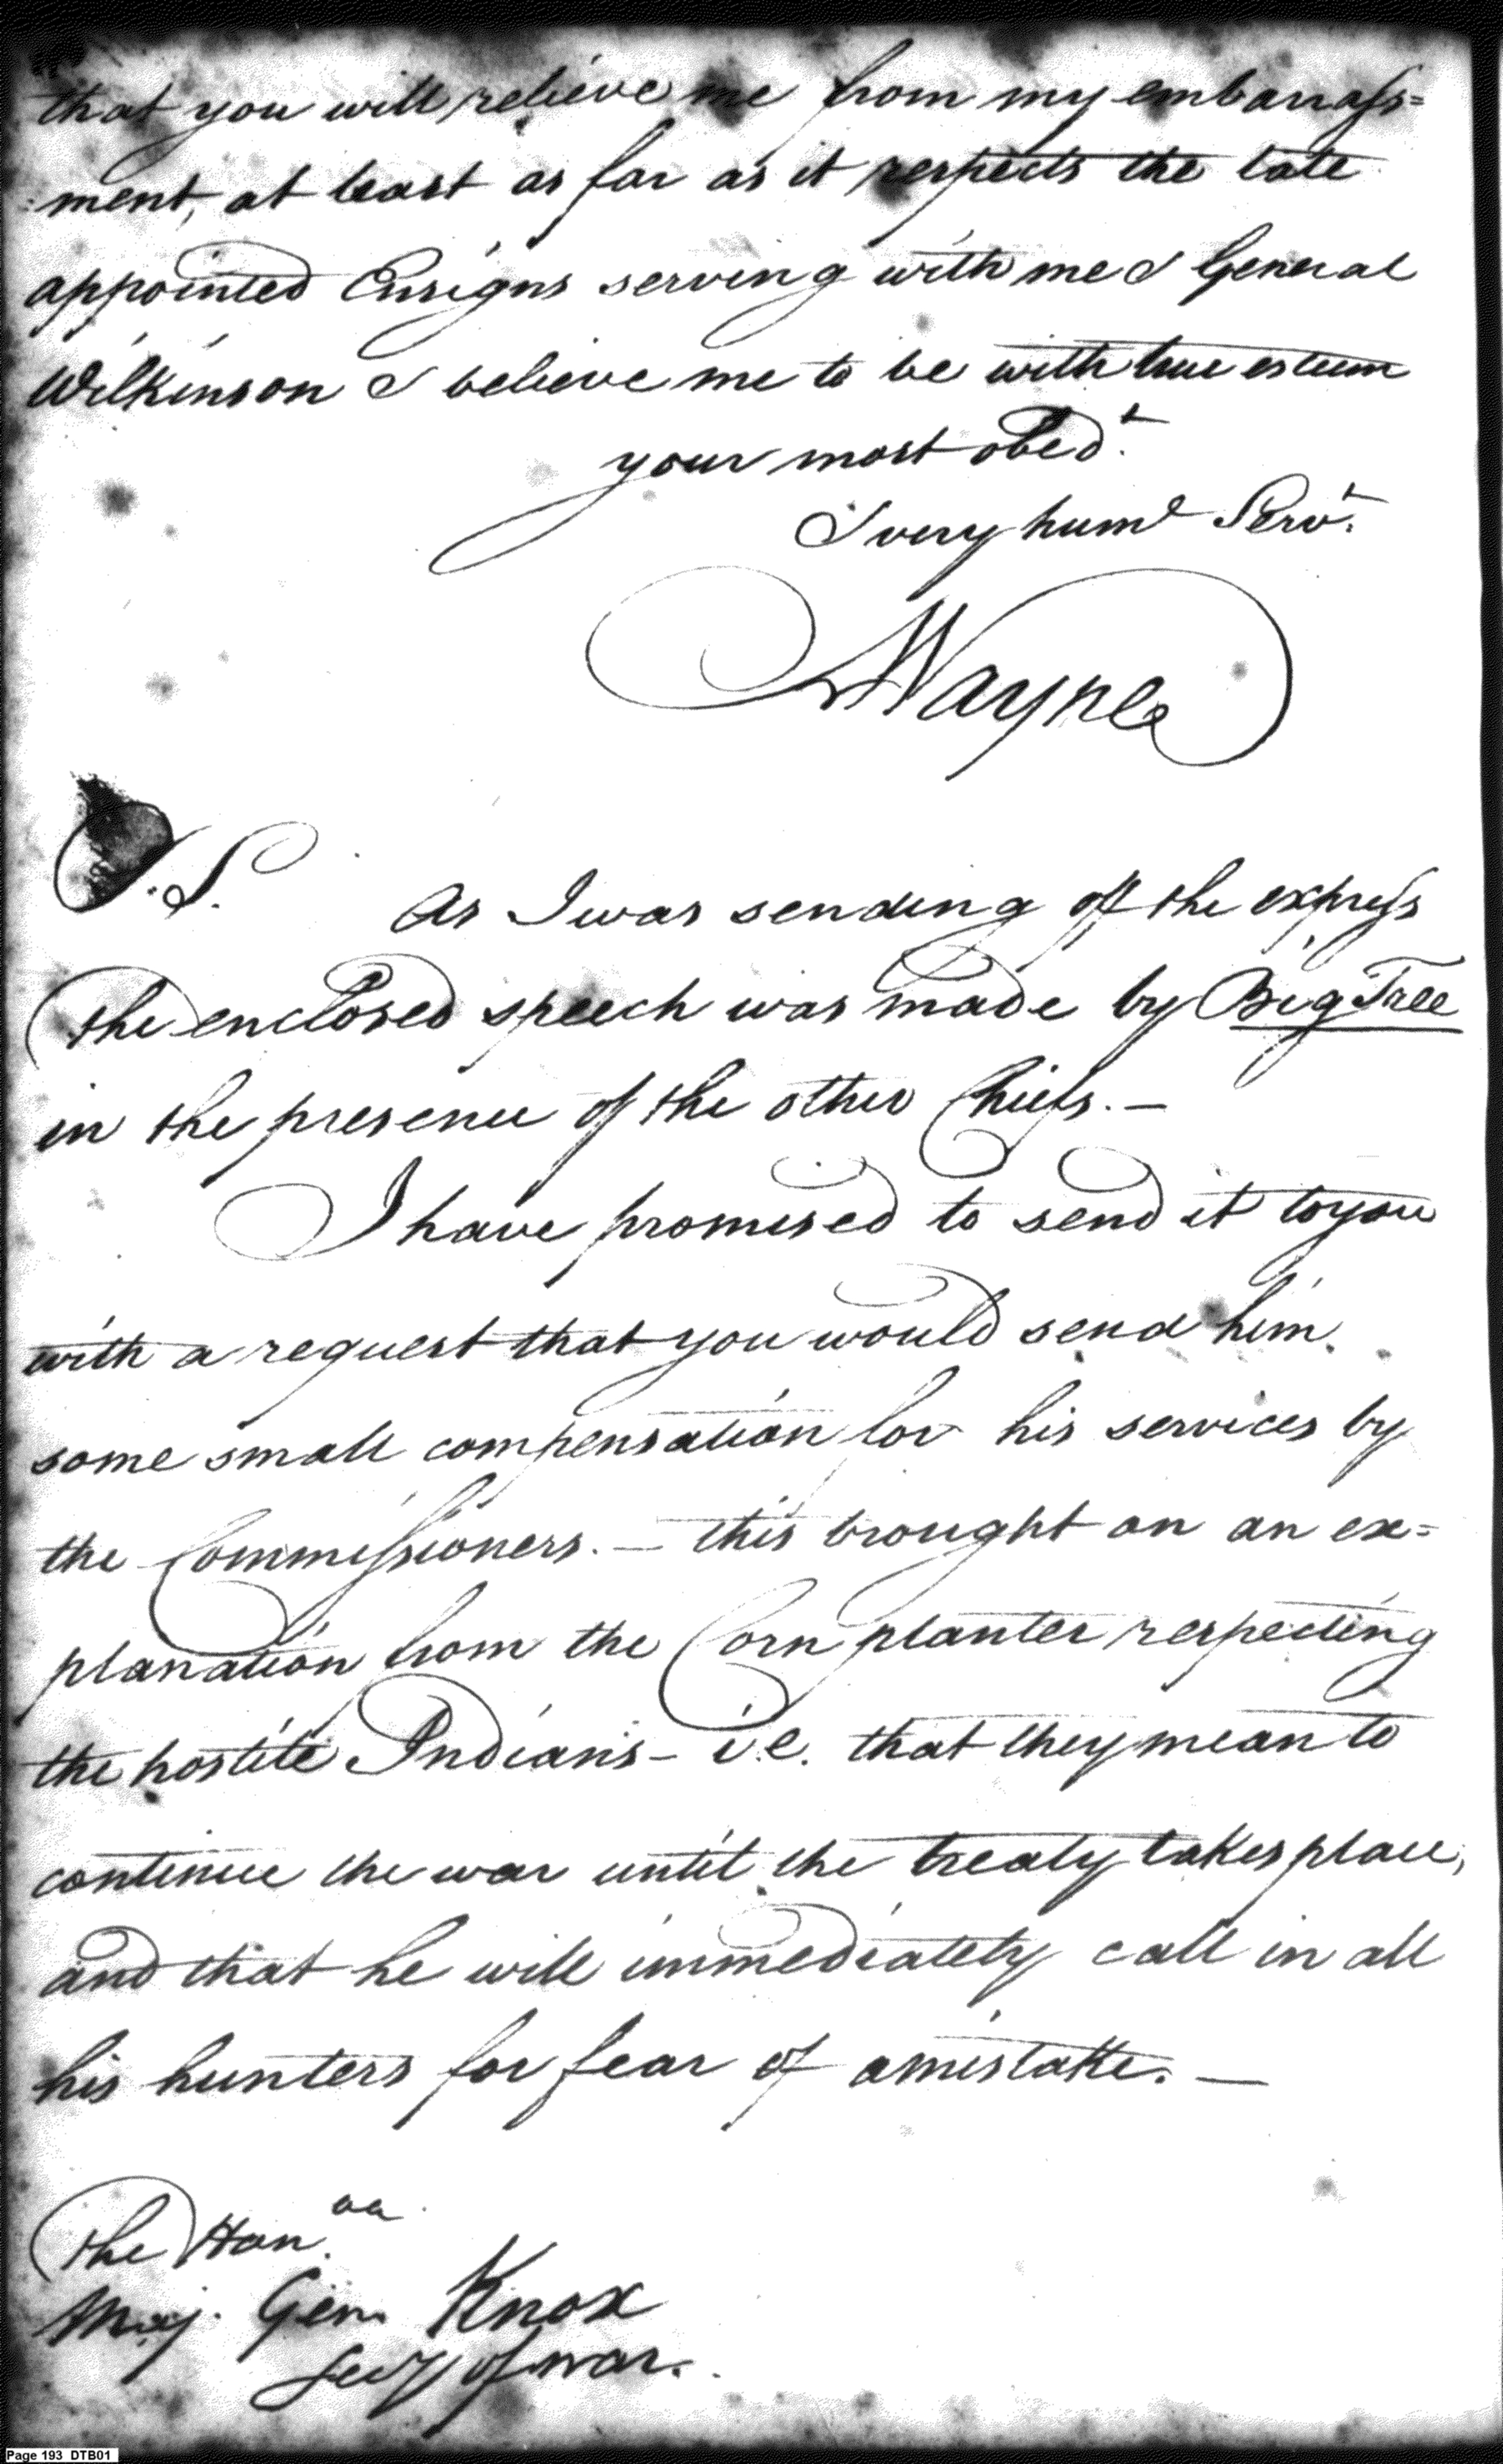 that you will relieve me from my embarrass=
=ment, at least as far as it respects the late
appointed Ensigns serving with me & General
Wilkinson & believe me to be with true esteem
your most obed.t
& very hum.e Serv.t
AWayne
P.S. As I was sending off the express
the enclosed speech was made by Big Tree
in the presence of the other Chiefs. —
I have promised to send it to you
with a request that you would send him
some small compensation for his services by
the Commissioners. — this brought on an ex=
planation from the Corn planter respecting
the hostile Indians – i.e. that they mean to
continue the war until the treaty takes place,
and that he will immediately call in all
his hunters for fear of a mistake. —
The Hon.
Maj. Gen. Knox
Secy of war.
Page 193 DTB01